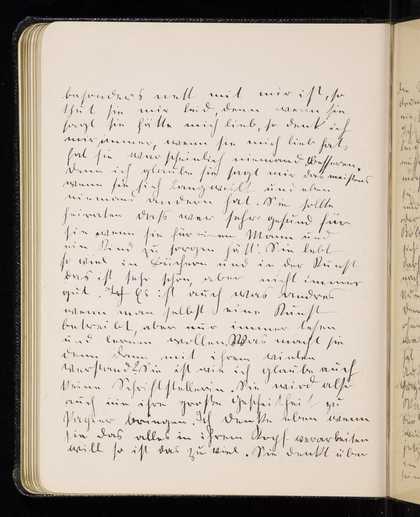 besonders nett mit mir ist, so
thut sie mir leid, denn wenn sie
sagt sie hätte mich lieb, so denk ich
mir immer, wenn sie mich lieb hat
hat sie warscheinlich niemand Besseren.
Denn ich glaube sie sagt mir das meistens
wenn sie sich langweilt und eben
niemand andern hat. Sie sollte
heiraten das wer sehr gesund für
sie wenn sie für einen Mann und
ein Kind zu sorgen hätt. Sie lebt
so viel in Büchern und in der Kunst
das ist sehr schön, aber nicht immer
gut. Es ist auch was andres
wenn man selbst eine Kunst
betreibt, aber nur immer lesen
und lernen wollen. Was macht sie
denn dann mit ihrem vielen
Verstand? Sie ist wie ich glaube auch
keine Schriftstellerin. Sie wird also
auch nie ihre große Gescheitheit zu
Papier bringen. Ich denke eben wenn
sie das alles in ihrem Kopf verarbeiten
will so ist das zu viel. Sie denkt über